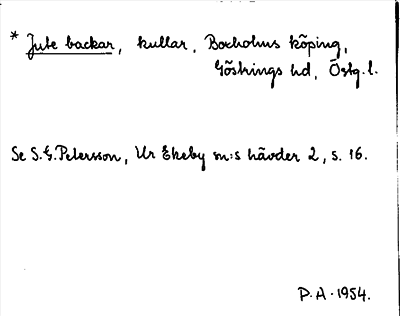 * Jute backar, kullar, Boxholms köping,
Göstrings hd, Östg. l.
Se S.G. Petersson, Ur Ekeby m:s hävder 2, s. 16.
P.A. 1954.